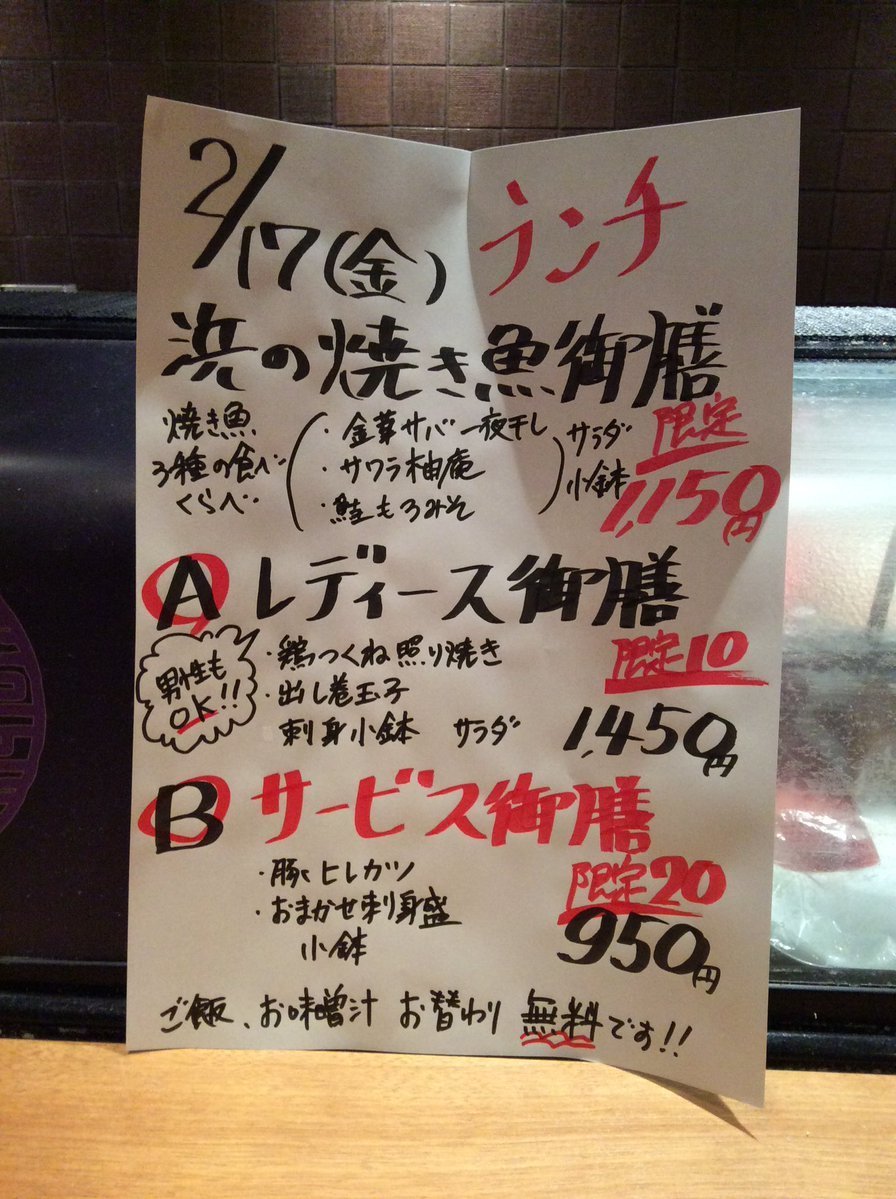 2/17(金) ランチ
浜の焼き魚御膳
焼き魚
3種の食べ
くらべ
・金華サバ一夜干し
・サワラ柚庵
・鮭もろみそ
サラダ
小鉢
限定
1,150円
A レディース御膳
男性も
OK!!
・鶏つくね照り焼き
・出し巻玉子
刺身小鉢 サラダ
限定10
1,450円
B サービス御膳
・豚ヒレカツ
・おまかせ刺身盛
小鉢
限定20
950円
ご飯、お味噌汁 お替わり 無料です!!